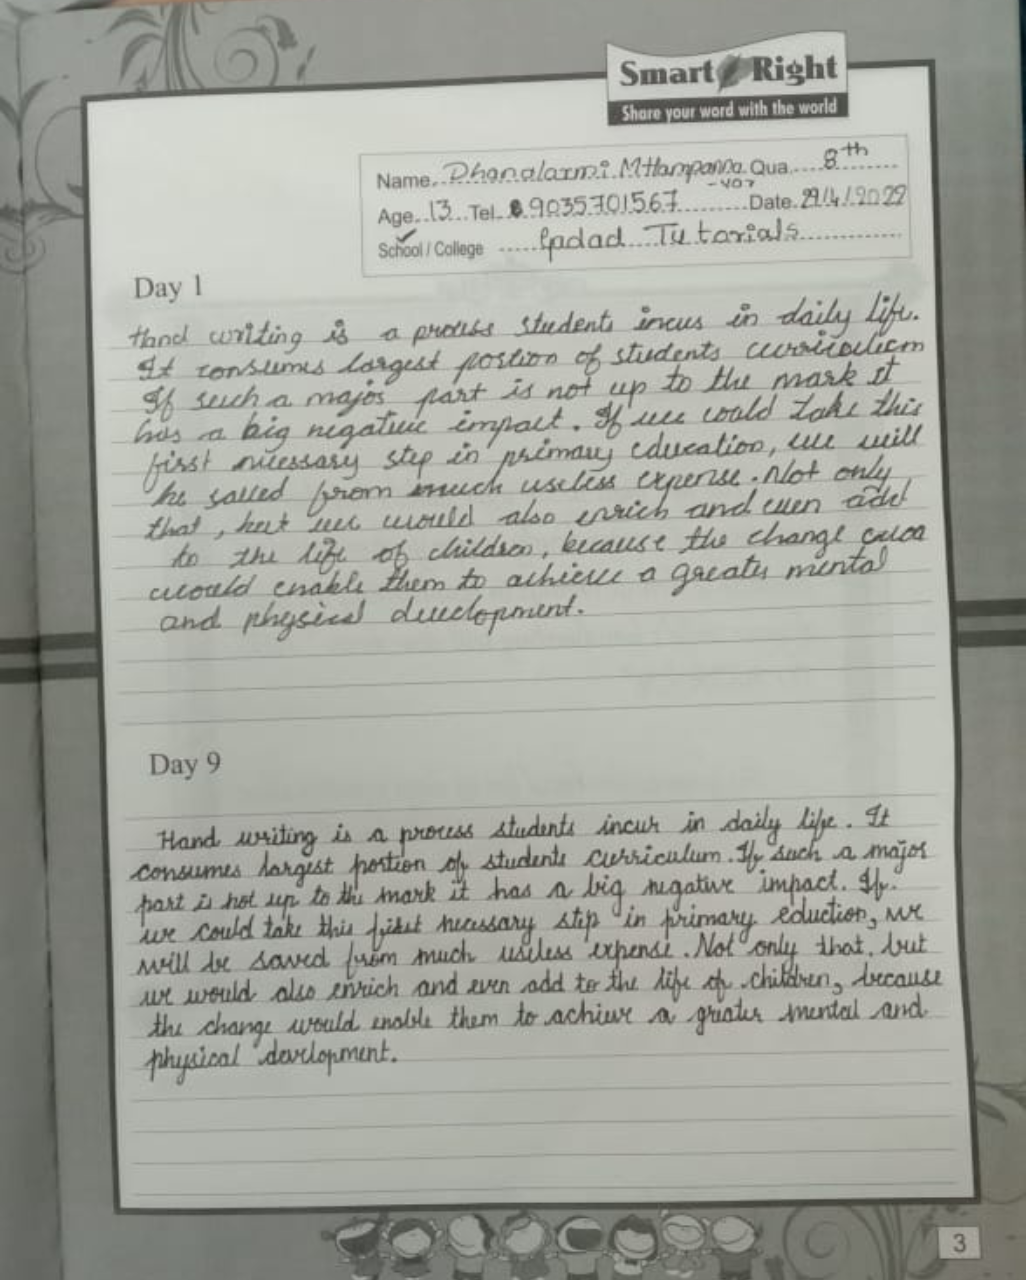 Smart Right
Share your word with the world
Name. Dhanalaxmi. M Hampanna. Qua. 8th
Age. 13 Tel. 9035701567 Date. 29/4/2022
School / College Gadad Tutorials
Day 1
Hand writing is a process students incus in daily life.
It consumes largest postion of students curriculicm
If such a majos part is not up to the mark it
has a big negative impact. If we could take this
first necessary step in primary education, we will
be saved from much useless expense. Not only
that, but we would also enrich and even add
to the life of children, because the change
would enable them to achieve a greates mental
and physical development.
Day 9
Hand writing is a process students incur in daily life. It
consumes largest portion of students curriculum. If such a major
part is not up to the mark it has a big negative impact. If.
we could take this first necessary step in primary eduction, we
will be saved from much useless expense. Not only that, but
we would also enrich and even add to the life of children, because
the change would enable them to achieve a greater mental and
physical development.
3